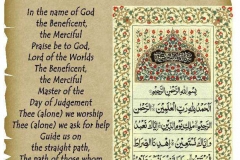 In the name of God
the Beneficent,
the Merciful
Praise be to God,
Lord of the Worlds
The Beneficent,
the Merciful
Master of the
Day of Judgement
Thee (alone) we worship
Thee (alone) we ask for help
Guide us on
the straight path,
The path of those whom
بسم الله الرحمن الرحيم
الحمد لله رب العلمين الرحمن
الرحيم ملك يوم الدين اياك نعبد
واياك نستعين اهدنا الصراط